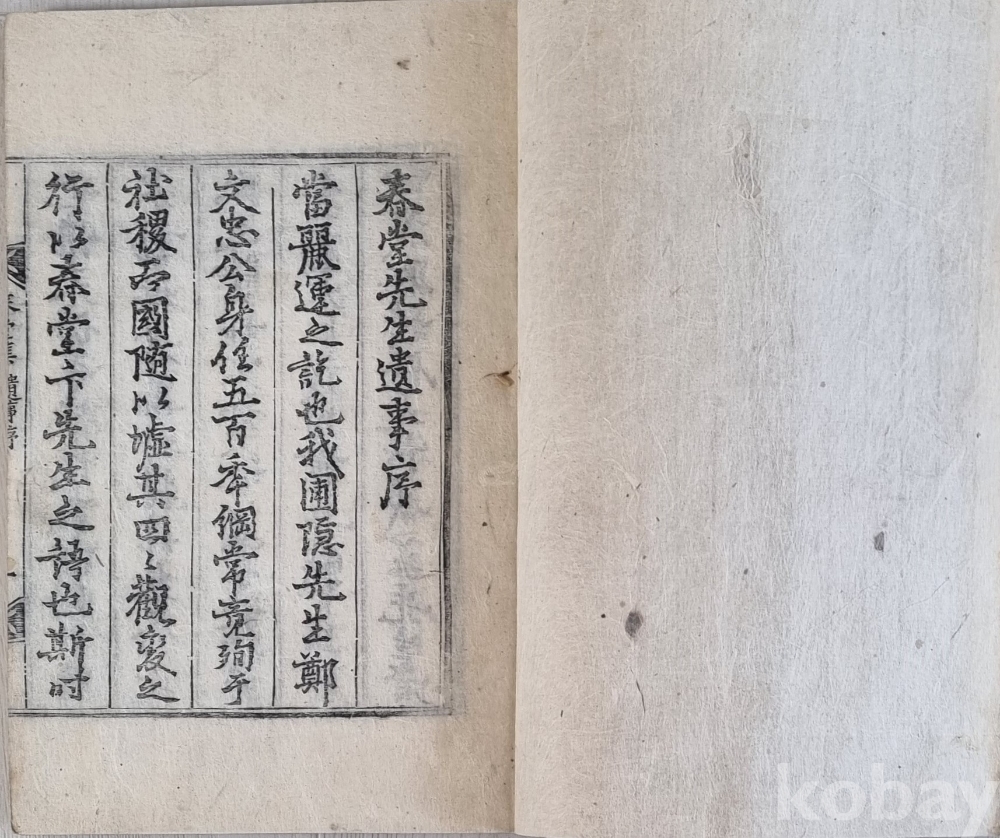 春堂先生遺事序
當麗運之訖也我圃隠先生鄭
文忠公身任五百秊綱常竟殉于
社稷而國随以墟其四〻觀變之
行以春堂卞先生之語也斯时
kobay